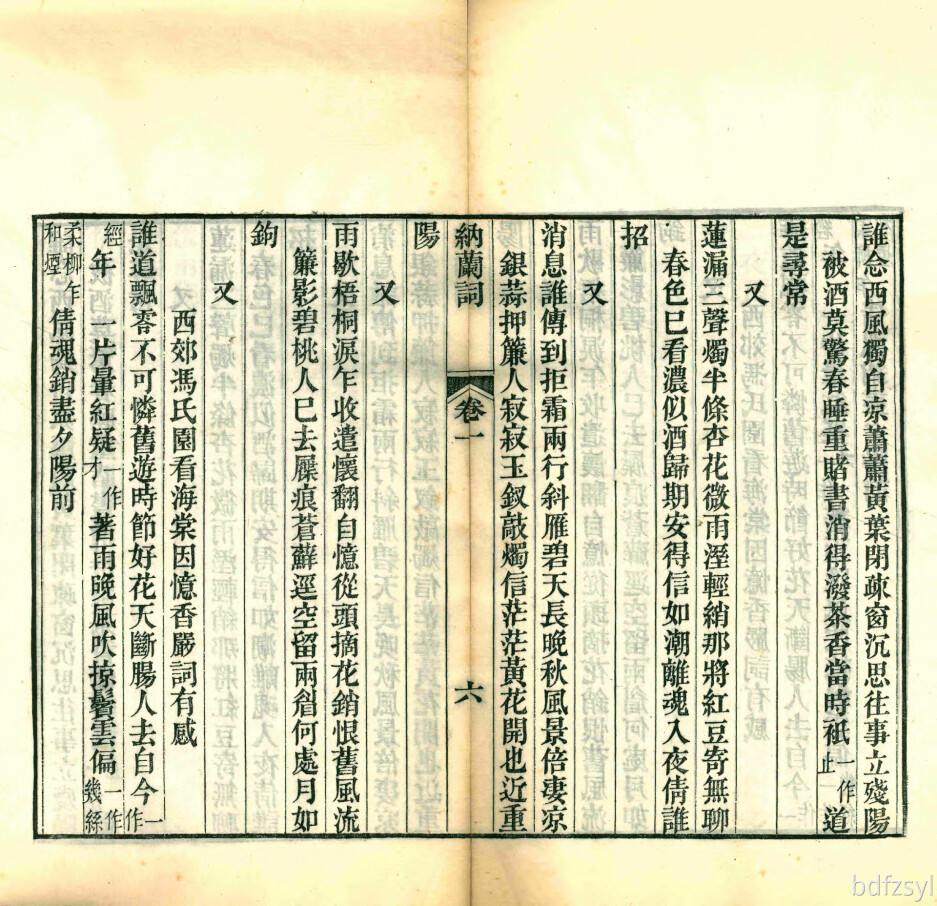 誰念西風獨自凉蕭蕭黃葉閉疎窗沉思往事立殘陽
被酒莫驚春睡重賭書消得潑茶香當時祇一作止道
是尋常
又
蓮漏三聲燭半條杏花微雨溼輕綃那將紅豆寄無聊
春色已看濃似酒歸期安得信如潮離魂入夜倩誰
招
又
消息誰傳到拒霜兩行斜雁碧天長晚秋風景倍凄凉
銀蒜押簾人寂寂玉釵敲燭信茫茫黃花開也近重
納蘭詞 卷一 六
陽
又
雨歇梧桐淚乍收遣懷翻自憶從頭摘花銷恨舊風流
簾影碧桃人已去屧痕蒼蘚逕空留兩眉何處月如
鉤
又
西郊馮氏園看海棠因憶香嚴詞有感
誰道飄零不可憐舊遊時節好花天斷腸人去自今一作
經年一片暈紅疑一作才著雨晚風吹掠鬢雲偏一作幾絲
柔柳乍和煙倩魂銷盡夕陽前
bdfzsyl